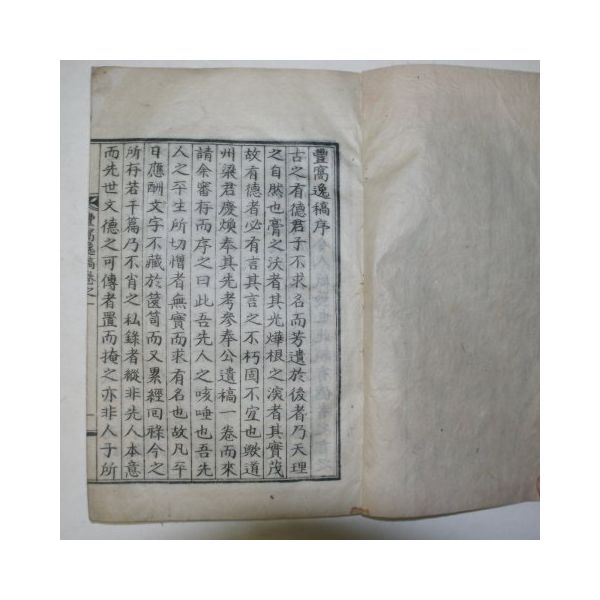 豐窩逸稿序
古之有德君子不求名而芳遺於後者乃天理
之自然也膏之沃者其光燁根之演者其實茂
故有德者必有言其言之不朽固不宜也歟道
州梁君慶煥奉其先考參奉公遺稿一卷而來
請余審存而序之曰此吾先人之咳唾也吾先
人之平生所切憎者無實而求有名也故凡平
日應酬文字不藏於篋笥而又累經回祿今之
所存若干篇乃不肖之私錄者縱非先人本意
而先世文德之可傳者置而掩之亦非人子所
豐窩逸稿卷之一